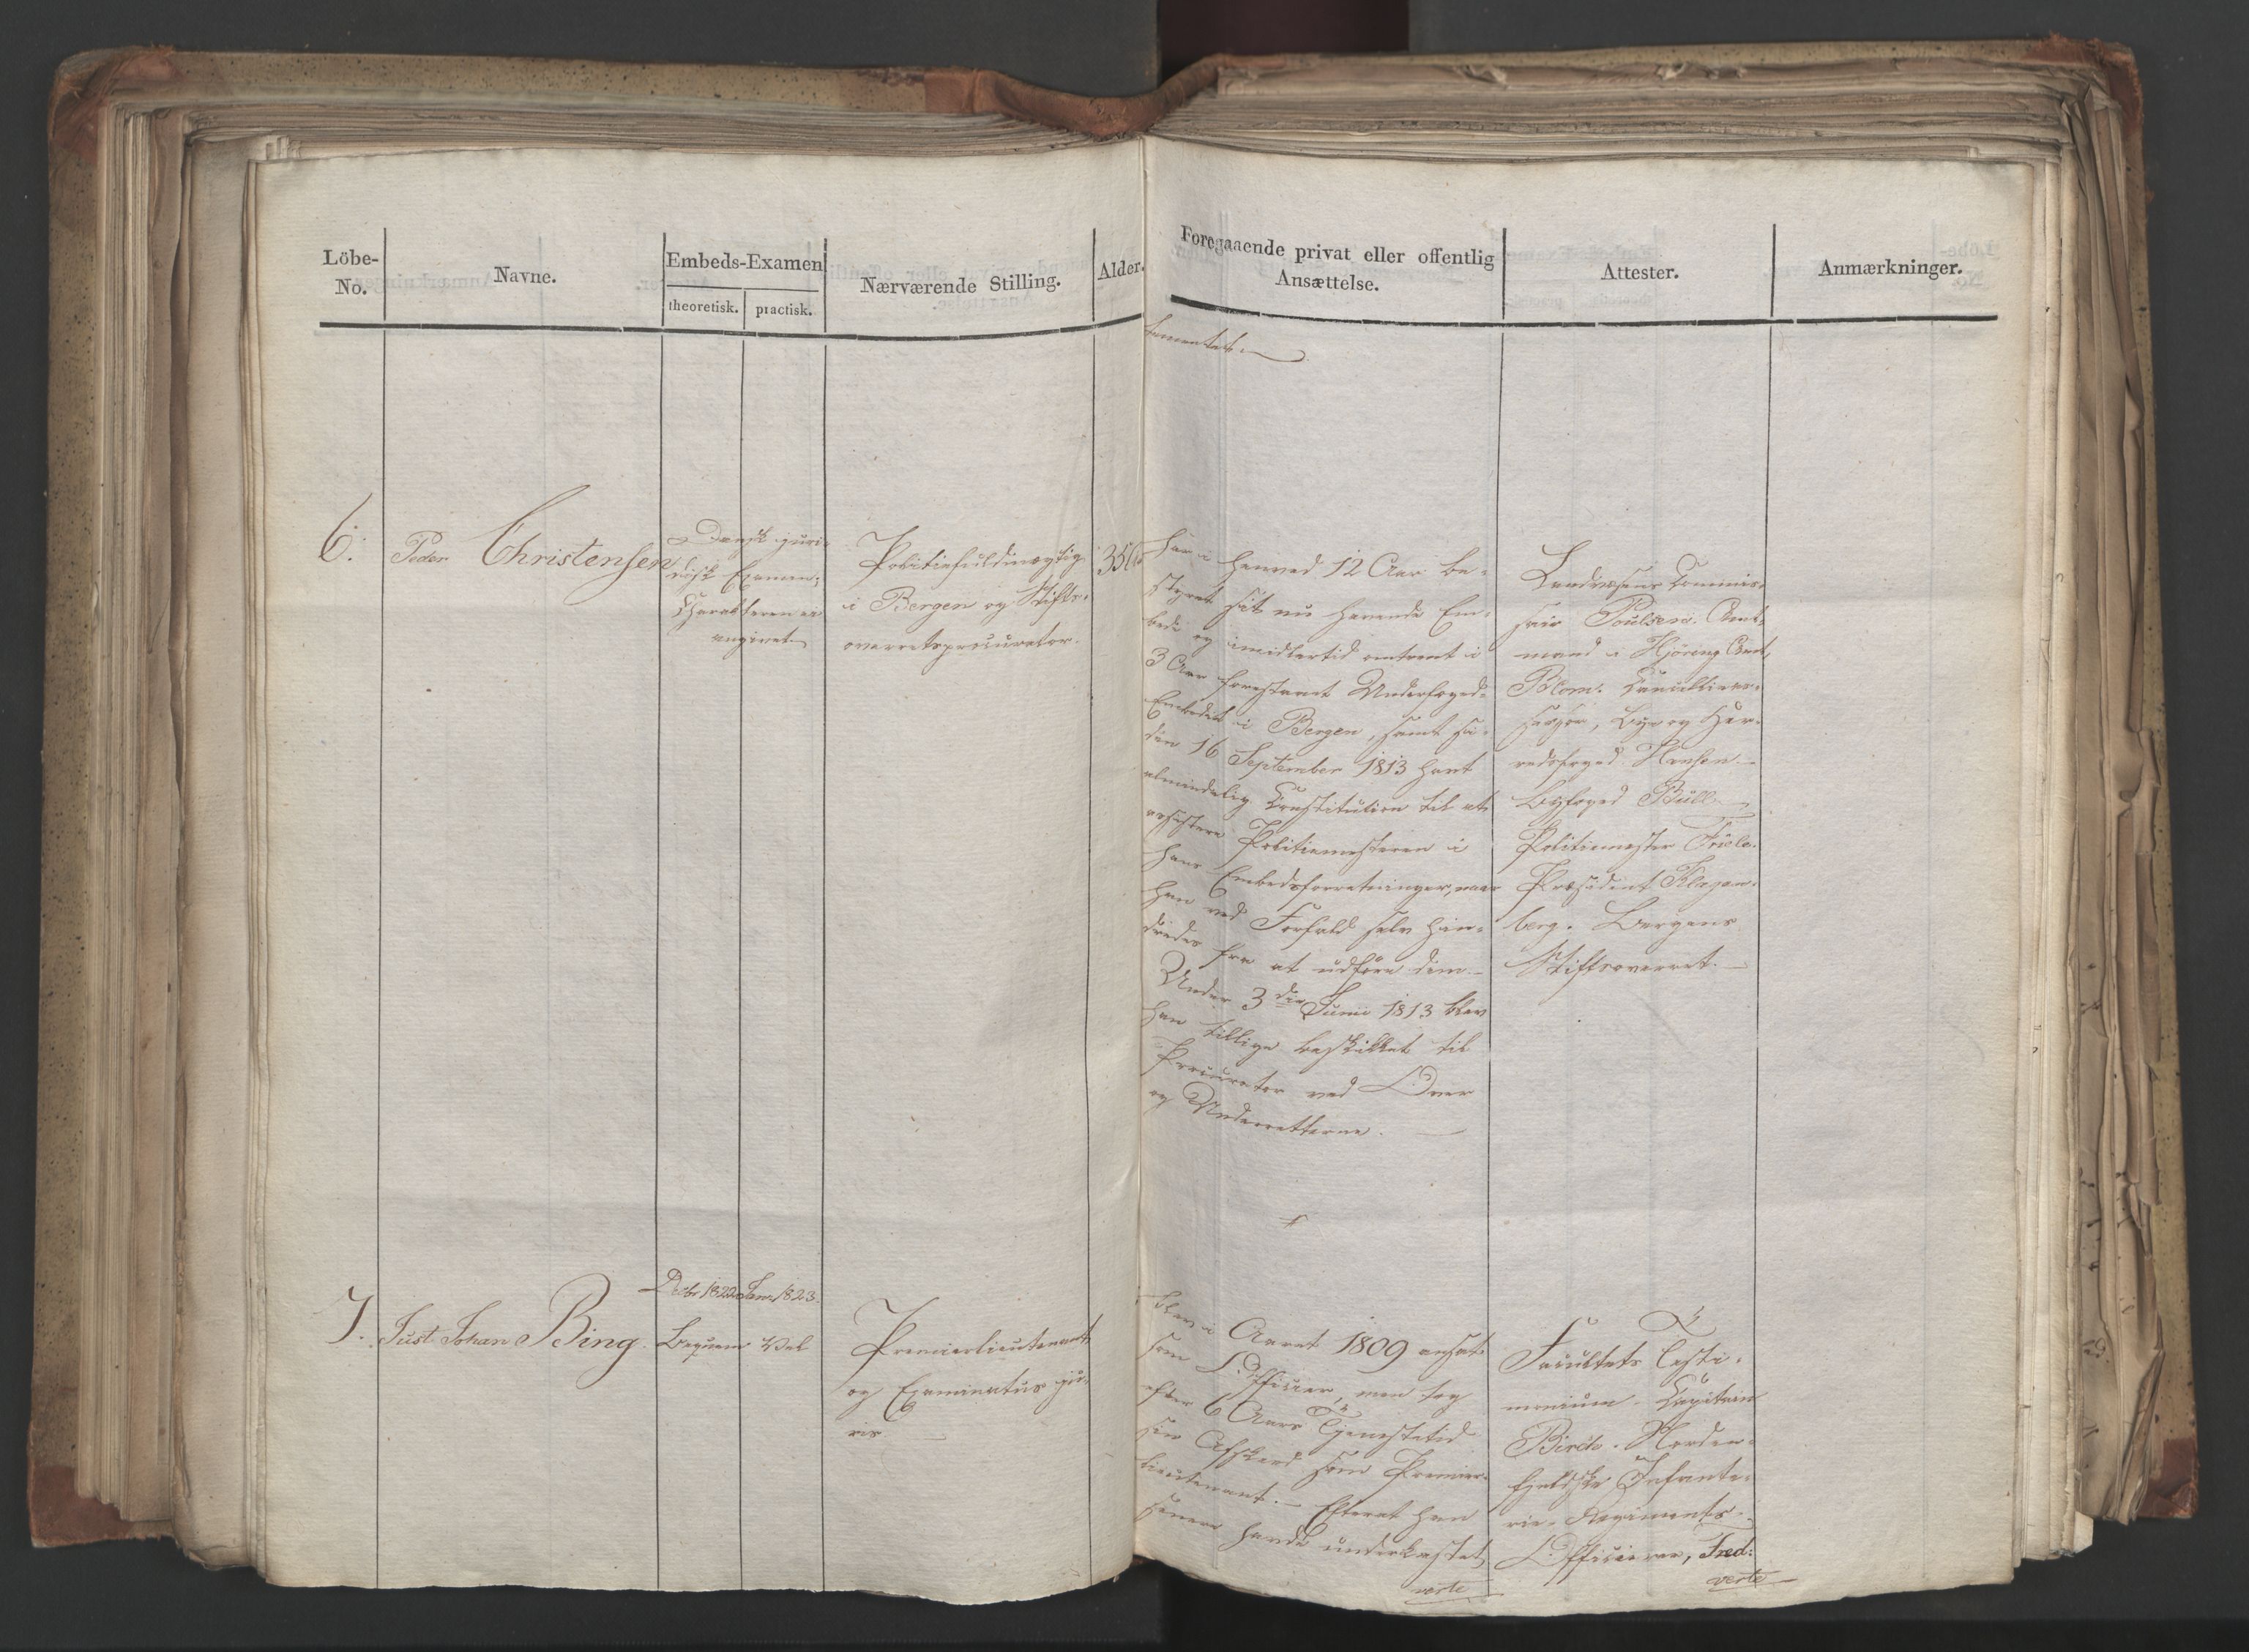 Löbe-
No.
Navne.
Embeds-Examen
theoretisk.
practisk.
Nærværende Stilling.
Alder.
Foregaaende privat eller offentlig
Ansættelse.
Attester.
Anmærkninger.
6.
Peder Christensen
Dansk juri-
disk Examen;
Charakteren ei
angivet
Politiefuldmægtig
i Bergen og Stifts-
overretsprocurator.
Har i henved 12 Aar be-
styret sit nu havende Em-
bede og imidlertid omtrent i
3 Aar forestaaet Underfoged-
Embedet i Bergen, samt si-
den 16 September 1813 havt
almindelig Constitution til at
assistere Politiemesteren i
hans Embedsforretninger, naar
han ved Forfald selv hin-
dredes fra at udføre dem.-
Under 3die Junii 1813 blev
han tillige beskikket til
Procurator ved Over
og Underretterne. —
Landvæsens Commis-
sair Poulsen. Amt-
mand i Hjöring Amt,
Blom. Cancellie-
By og Her-
redsfoged Hansen. -
Byfoged Bull
Politiemester Friele.
Præsident Klagen-
berg. Bergens
Stiftsoverret. —
7.
Just Johan Bing.
Decbr 1822
Jan: 1823.
Beqvem
Vel
Premierlieutenant
og Examinatus ju-
ris
Blev i Aaret 1809 ansat
som Officier, men tog
efter 6 Aars Tjenestetid
sin Afskeed som Premier-
lieutenant. — Efterat han
senere havde underkastet
verte
Facultets Testi-
monium. Capitain
Birch. Norden-
fjeldske Infante-
rie-Regiments
Officierer, Fred:
verte